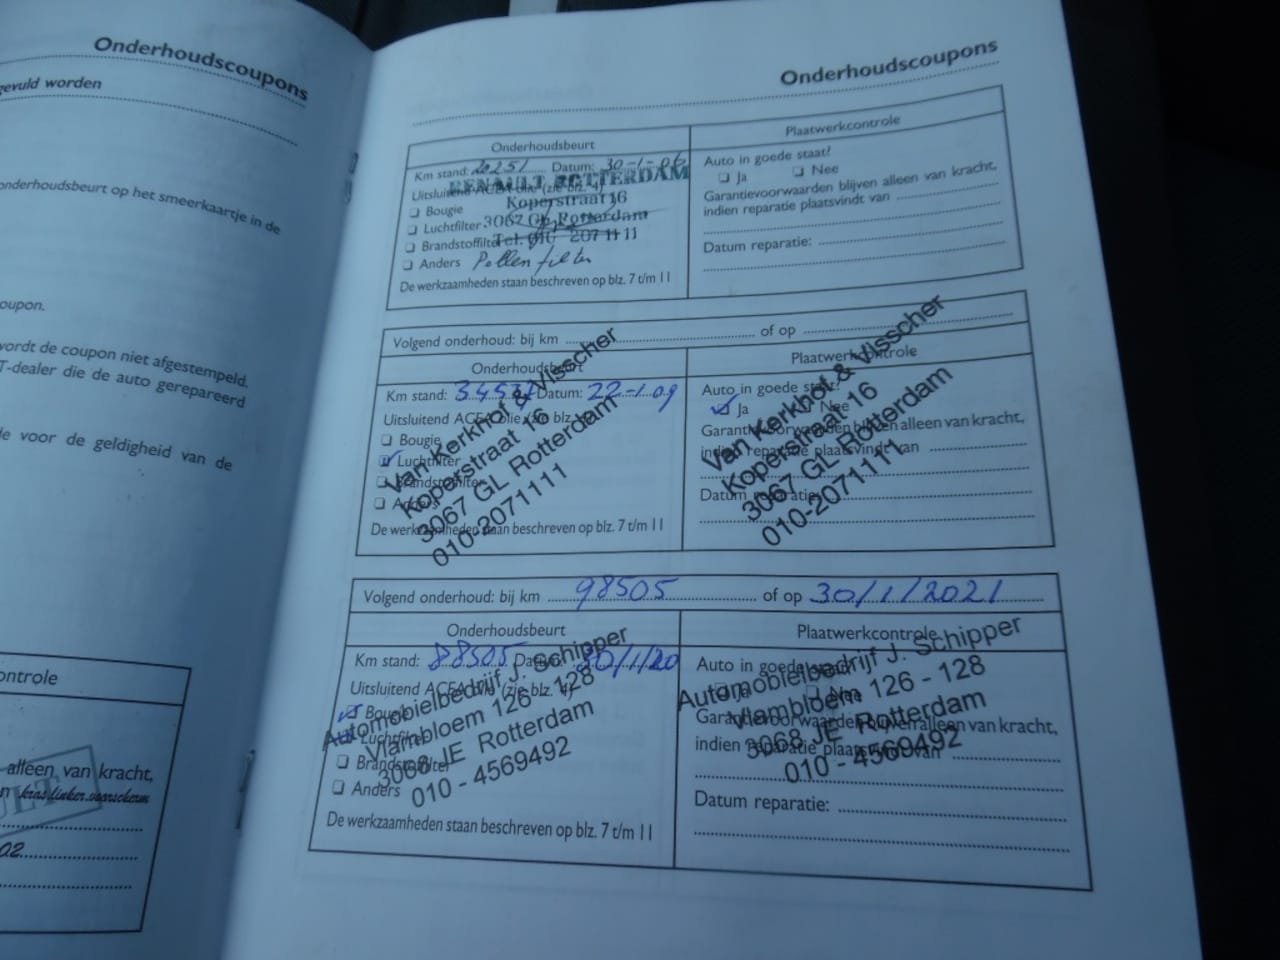 Onderhoudscoupons
gevuld worden
onderhoudsbeurt op het smeerkaartje in de
coupon.
wordt de coupon niet afgestempeld.
T-dealer die de auto gerepareerd
de voor de geldigheid van de
ontrole
alleen van kracht,
n kras linker voorscherm
02
Onderhoudscoupons
Onderhoudsbeurt
Km stand: 20251 Datum: 30-1-06
Uitsluitend ACEA olie (zie blz. 4)
Bougie
Luchtfilter
Brandstoffilter
Anders Pollen filter
De werkzaamheden staan beschreven op blz. 7 t/m 11
RENAULT ROTTERDAM
Koperstraat 16
3067 GL Rotterdam
Tel. 010 - 207 11 11
Plaatwerkcontrole
Auto in goede staat?
Ja Nee
Garantievoorwaarden blijven alleen van kracht,
indien reparatie plaatsvindt van
Datum reparatie:
Volgend onderhoud: bij km of op
Onderhoudsbeurt
Km stand: Datum: 22-1-09
Uitsluitend ACEA olie (zie blz.
Bougie
Luchtfilter
Brandstoffilter
Anders
De werkzaamheden staan beschreven op blz. 7 t/m 11
Van Kerkhof & Visscher
Koperstraat 16
3067 GL Rotterdam
010-2071111
Plaatwerkcontrole
Auto in goede staat?
Ja Nee
Garantievoorwaarden blijven alleen van kracht,
indien reparatie plaatsvindt van
Datum reparatie:
Van Kerkhof & Visscher
Koperstraat 16
3067 GL Rotterdam
010-2071111
Volgend onderhoud: bij km 98505 of op 30/1/2021
Onderhoudsbeurt
Km stand: 88505 Datum: 30/1/20
Uitsluitend ACEA olie (zie blz. 4)
Bougie
Luchtfilter
Brandstoffilter
Anders
De werkzaamheden staan beschreven op blz. 7 t/m 11
Automobielbedrijf J. Schipper
Vlambloem 126 - 128
3068 JE Rotterdam
010 - 4569492
Plaatwerkcontrole
Auto in goede staat?
Ja Nee
Garantievoorwaarden blijven alleen van kracht,
indien reparatie plaatsvindt van
Datum reparatie:
Automobielbedrijf J. Schipper
Vlambloem 126 - 128
3068 JE Rotterdam
010 - 4569492